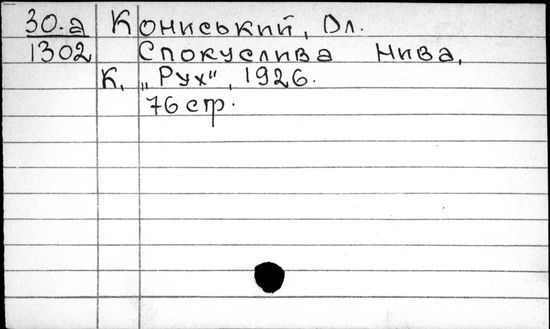 30.а Кониський, Ол.
1302 Спокуслива Нива,
К, „Рух", 1926.
76 стр.